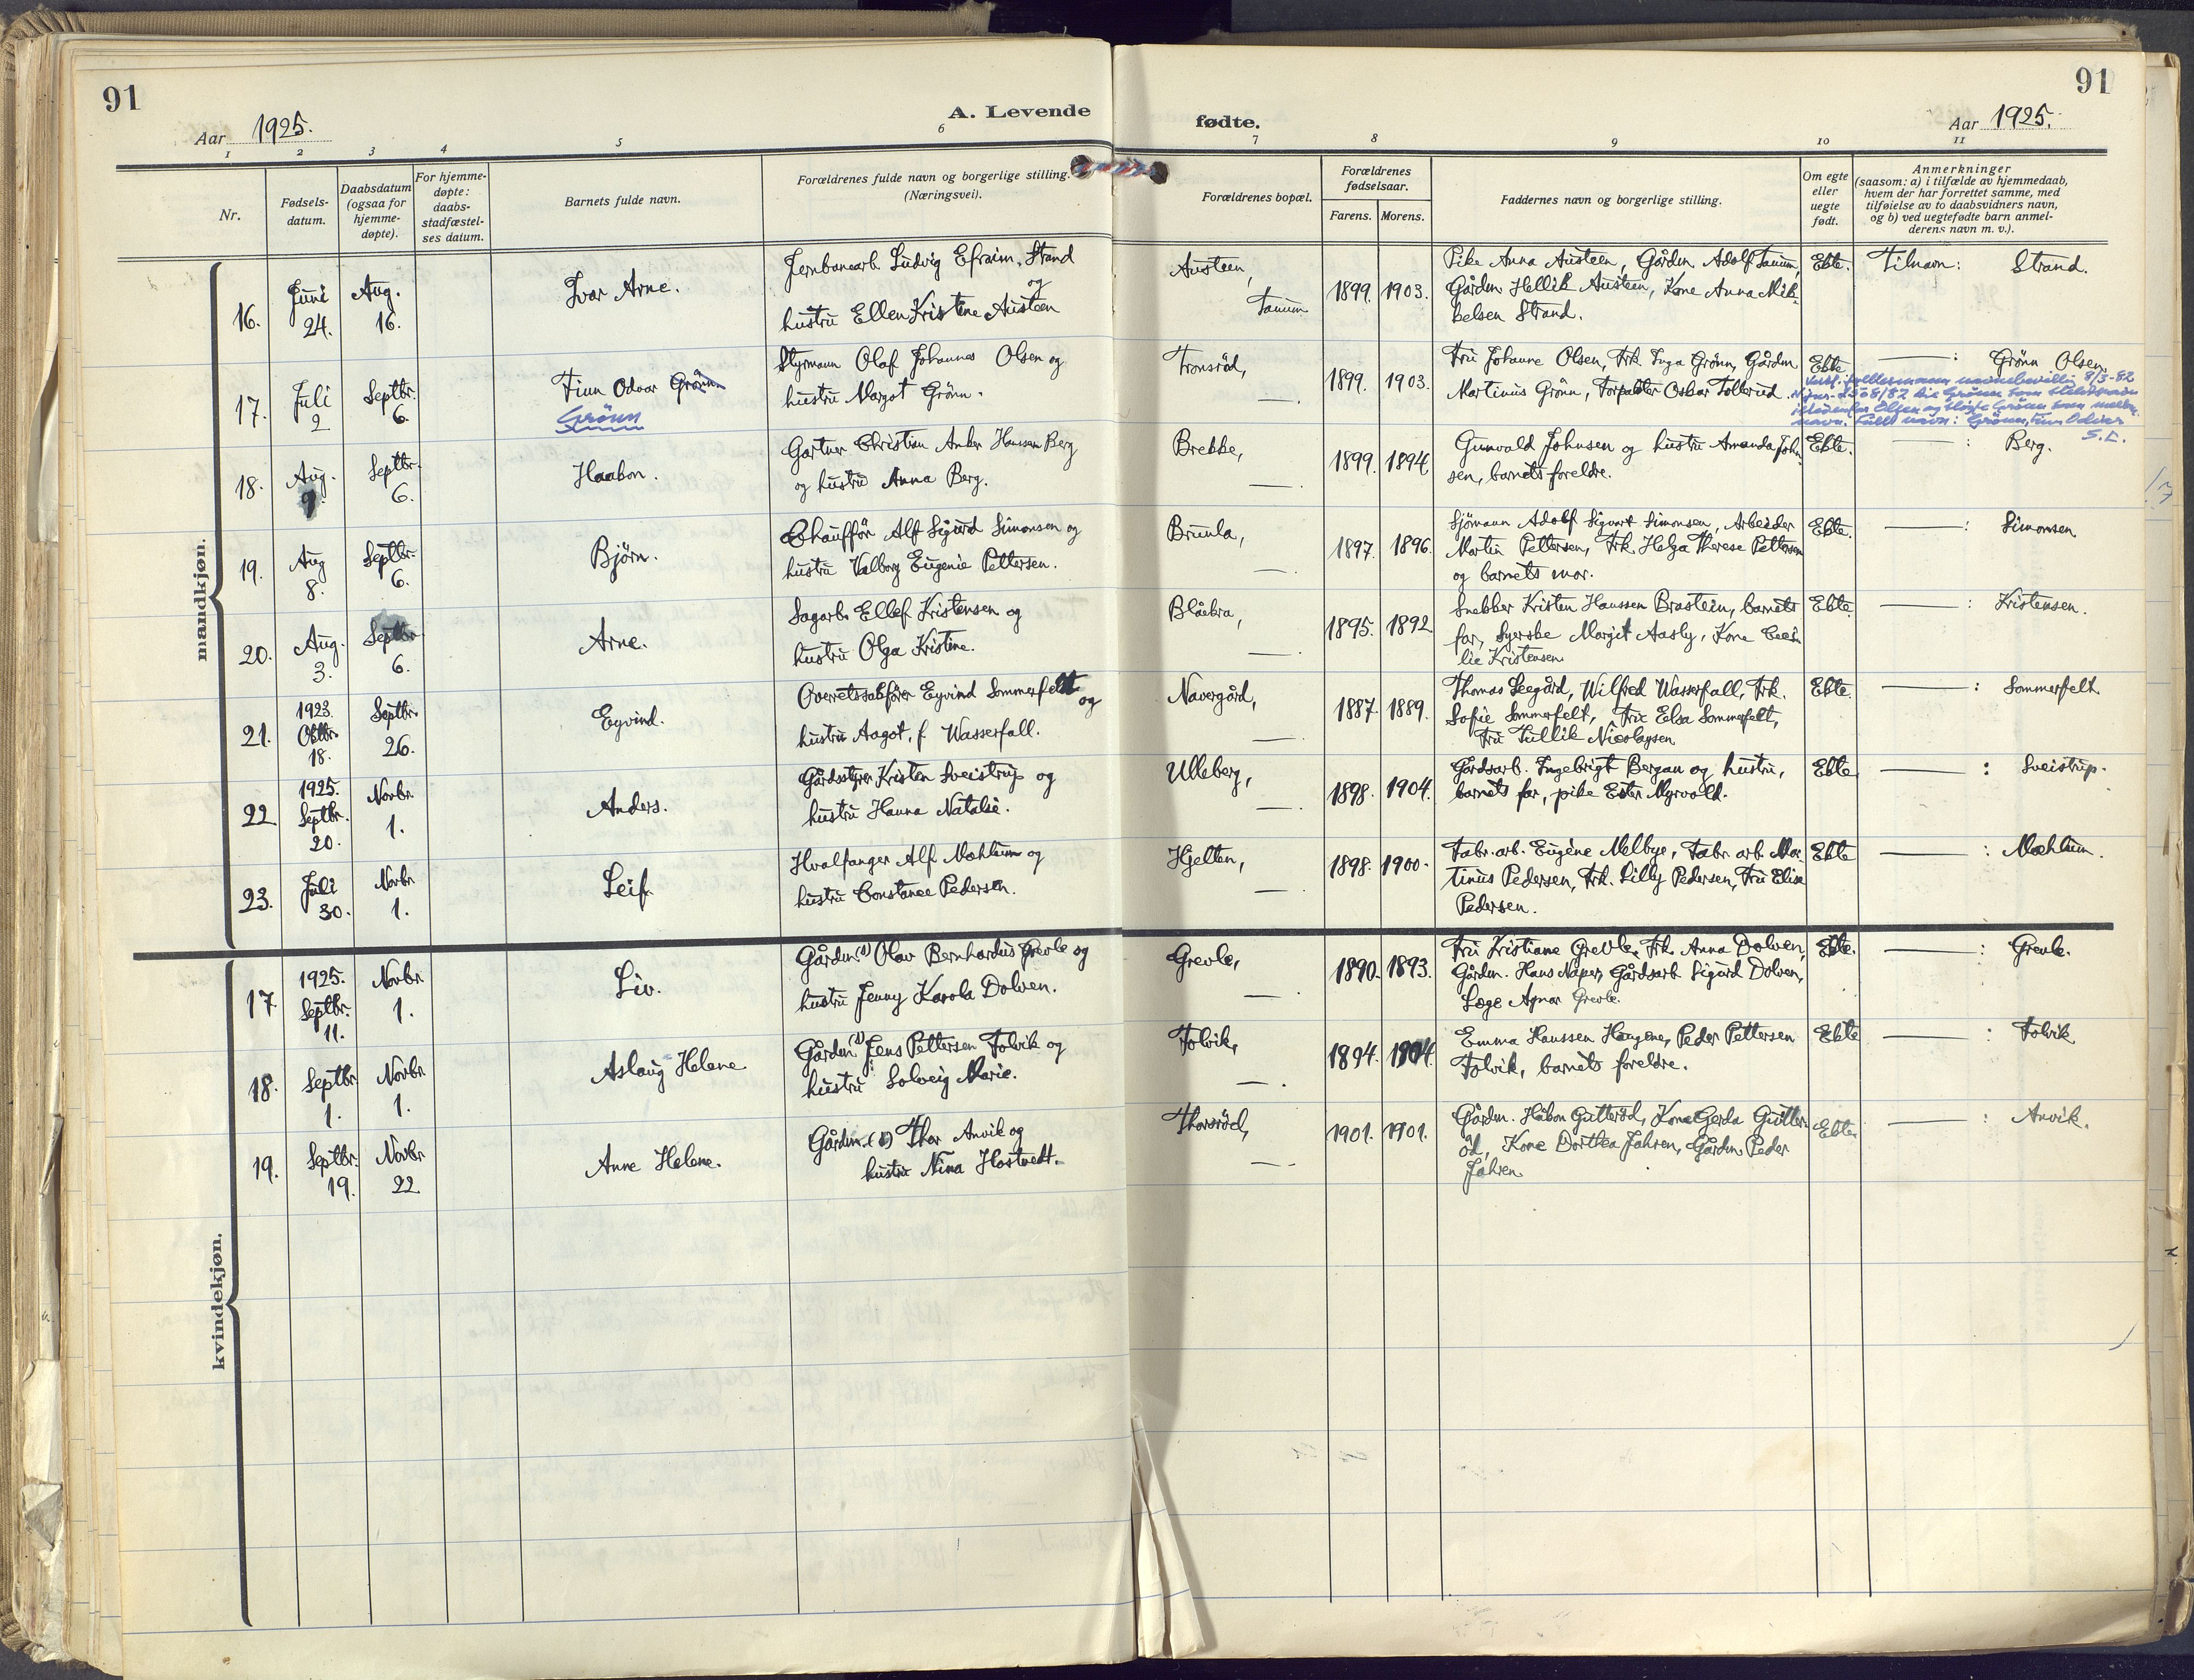 91
Aar 1925.
A. Levende
fødte.
Aar 1925.
91
1 2 3 4 5 6 7 8 9 10 11
Nr.
Fødsels-
datum.
Daabsdatum
(ogsaa for
hjemme-
døpte).
For hjemme-
døpte:
daabs-
stadfæstel-
ses datum.
Barnets fulde navn.
Forældrenes fulde navn og borgerlige stilling.
(Næringsvei).
Forældrenes bopæl.
Forældrenes
fødselsaar.
Farens. Morens.
Faddernes navn og borgerlige stilling.
Om egte
eller
uegte
født.
Anmerkninger
(saasom: a) i tilfælde av hjemmedaab,
hvem der har forrettet samme, med
tilføielse av to daabsvidners navn,
og b) ved uegtefødte barn anmel-
derens navn m. v.).
mandkjøn.
16.
Juni
24.
Aug.
16.
Ivar Arne.
Jernbanearb. Ludvig Efraim Strand
og
hustru Ellen Kristine Austeen
Austeen,
Tanum
1899. 1903.
Pike Anna Austeen, Gårdm. Adolf Tanum,
Gårdm. Hellik Austeen, Kone Anna Mik-
kelsen Strand.
Ekte.
Tilnavn: Strand.
17.
Juli
2
Septbr.
6.
Finn Odvar Grönn
Grönn
Styrmann Olaf Johannes Olsen og
hustru Margot Grönn.
Tronsröd,
— .
1899. 1903.
Fru Johanne Olsen, Frk. Inga Grönn, Gårdm
Martinus Grönn, Forpakter Oskar Tollerud.
Ekte
— : Grönn Olsen.
navnebevillg 8/3-82
navn. Fullt navn: Grönn, Finn Odvar
S.L.
18.
Aug.
9.
Septbr.
6.
Haakon.
Gartner Christian Anker Hansen Berg
og hustru Anna Berg.
Brekke,
— .
1899. 1894
Gunvald Johnsen og hustru Amanda John-
sen, barnets foreldre.
Ekte.
— : Berg.
19.
Aug
8.
Septbr.
6.
Björn.
Chauffør Alf Sigurd Simonsen og
hustru Valborg Eugenie Pettersen.
Brunla,
— .
1897. 1896.
Sjömann Adolf Sigvart Simonsen, Arbeider
Martin Pettersen, Frk. Helga Therese Pettersen
og barnets mor.
Ekte.
— : Simonsen
20.
Aug.
3.
Septbr
6.
Arne.
Sagarb. Ellef Kristensen og
hustru Olga Kristine.
Blåekra,
— .
1895. 1892
Snekker Kristen Hanssen Brastein, barnets
far, Syerske Margit Aasly, Kone Ceci-
lie Kristensen
Ekte.
— : Kristensen.
21.
1923.
Oktbr.
18.
Septbr.
26.
Eyvind.
Overretssakförer Eyvind Sommerfelt
og
hustru Aagot, f. Wasserfall.
Navergård,
— .
1887. 1889.
Thomas Seegård, Wilfred Wasserfall, Frk.
Sofie Sommerfelt, Fru Elsa Sommerfelt,
Fru Tullik Nicolaysen
Ekte.
— : Sommerfelt.
22
1925.
Septbr.
20.
Novbr.
1.
Anders.
Gårdsstyrer Kristen Sveistrup og
hustru Hanna Natalie.
Ulleberg,
— .
1898. 1904.
Gårdsarb. Ingebrigt Bergan og hustru,
barnets far, pike Ester Myrvold.
Ekte
— : Sveistrup.
23.
Juli
30.
Novbr
1.
Leif
Hvalfanger Alf Mæhlum og
hustru Constance Pedersen.
Hjelten,
— .
1898. 1900.
Fabr. arb. Eugène Melbye, Fabr. arb. Mar-
tinius Pedersen, Frk. Lilly Pedersen, Fru Elise
Pedersen.
Ekte
— : Mæhlum.
kvindekjøn.
17.
1925.
Septbr.
11.
Novbr
1.
Liv.
Gårdm. Olav Bernhardus Grevle og
hustru Jenny Karola Dolven.
Grevle,
— .
1890. 1893.
Fru Kristiane Grevle, Frk. Anna Dolven,
Gårdm. Hans Naper, Gårdsarb. Sigurd Dolven,
Læge Agnar Grevle.
Ekte.
— : Grevle.
18.
Septbr
1.
Novbr
1.
Aslaug Helene
Gårdm. Jens Pettersen Tolvik og
hustru Solveig Marie.
Tolvik,
— .
1894. 1904.
Emma Hanssen Haugene, Peder Pettersen
Tolvik, barnets foreldre.
Ekte
— : Tolvik
19.
Septbr.
19.
Novbr
22
Anne Helene.
Gårdm. Thor Anvik og
hustru Nina Hostvedt.
Thorsröd,
— .
1901. 1901.
Gårdm. Håkon Gutteröd, Kone Gerda Gutter-
öd, Kone Dorthea Jahren, Gårdm. Peder
Jahren
Ekte.
— : Anvik.